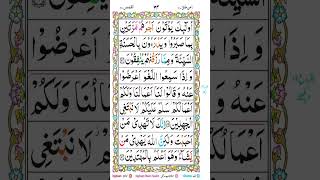 اُولٰٓئِكَ يُؤْتَوْنَ اَجْرَهُمْ مَّرَّتَيْنِ
بِمَا صَبَرُوْا وَيَدْرَءُوْنَ بِالْحَسَنَةِ
السَّيِّئَةَ وَمِمَّا رَزَقْنٰهُمْ يُنْفِقُوْنَ
وَاِذَا سَمِعُوا اللَّغْوَ اَعْرَضُوْا
عَنْهُ وَقَالُوْا لَنَآ اَعْمَالُنَا وَلَكُمْ
اَعْمَالُكُمْ سَلٰمٌ عَلَيْكُمْ لَا نَبْتَغِي
الْجٰهِلِيْنَ اِنَّكَ لَا تَهْدِيْ مَنْ
اَحْبَبْتَ وَلٰكِنَّ اللّٰهَ يَهْدِيْ مَنْ
يَّشَآءُ وَهُوَ اَعْلَمُ بِالْمُهْتَدِيْنَ